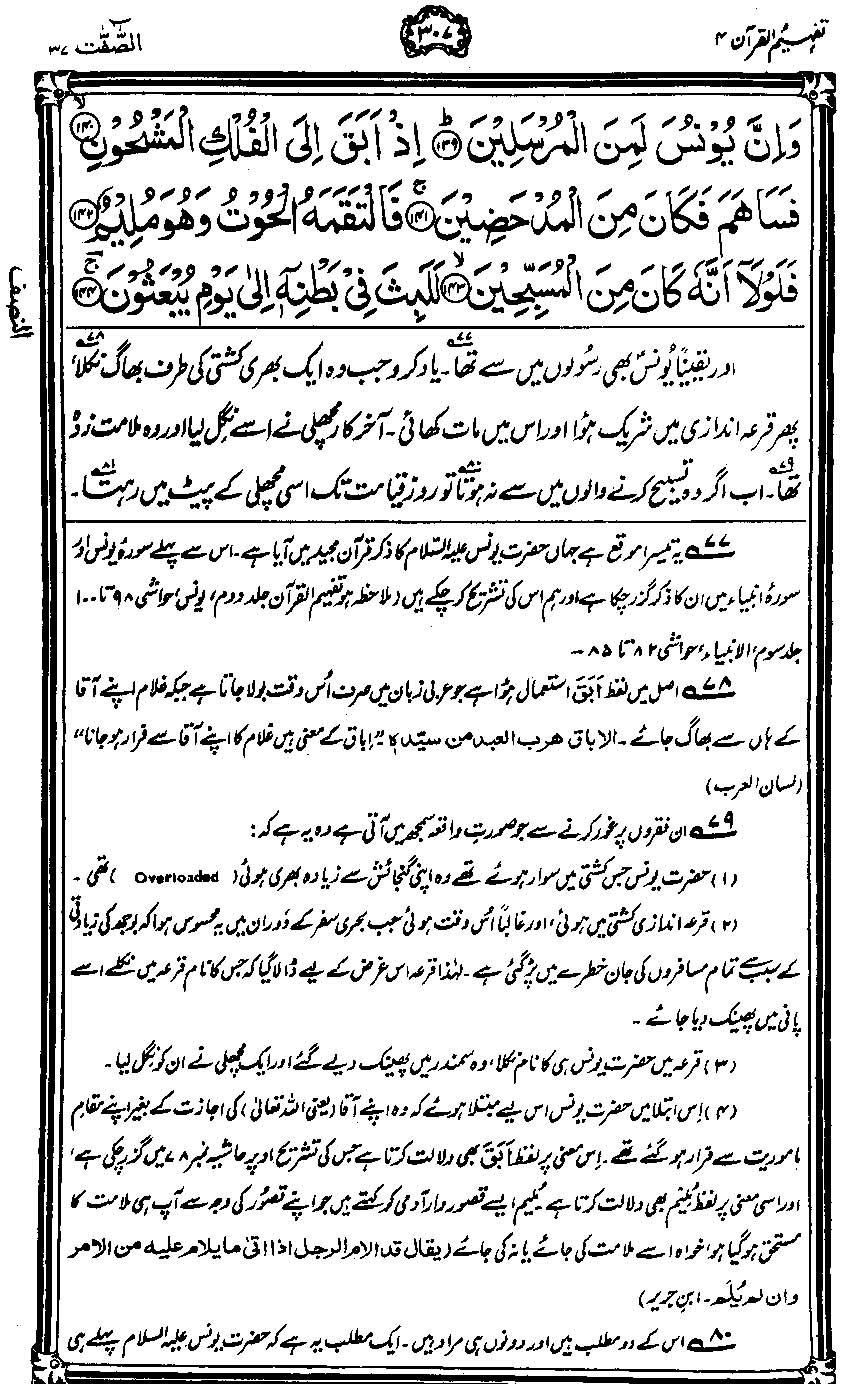 تفہیم القرآن ۴
۳۰۷
الصّٰفّٰت ۳۷
وَاِنَّ يُوْنُسَ لَمِنَ الْمُرْسَلِيْنَ ؕ﴿۱۳۹﴾ اِذْ اَبَقَ اِلَى الْفُلْكِ الْمَشْحُوْنِ ۙ﴿۱۴۰﴾
فَسَاهَمَ فَكَانَ مِنَ الْمُدْحَضِيْنَ ۚ﴿۱۴۱﴾ فَالْتَقَمَهُ الْحُوْتُ وَهُوَ مُلِيْمٌ ﴿۱۴۲﴾
فَلَوْلَاۤ اَنَّهٗ كَانَ مِنَ الْمُسَبِّحِيْنَ ۙ﴿۱۴۳﴾ لَلَبِثَ فِيْ بَطْنِهٖۤ اِلٰى يَوْمِ يُبْعَثُوْنَ ۚ﴿۱۴۴﴾
النصف
اور یقیناً یُونسؑ بھی رسُولوں میں سے تھا۷۷۔ یاد کرو جب وہ ایک بھری کشتی کی طرف بھاگ نکلا۷۸،
پھر قرعہ اندازی میں شریک ہؤا اور اس میں مات کھائی۔ آخر کار مچھلی نے اسے نِگل لیا اور وہ ملامت زدہ
تھا۷۹۔ اب اگر وہ تسبیح کرنے والوں میں سے نہ ہوتا۸۰ تو روزِ قیامت تک اسی مچھلی کے پیٹ میں رہتا۸۱۔
۷۷ یہ تیسرا موقع ہے جہاں حضرت یونس علیہ السّلام کا ذکر قرآن مجید میں آیا ہے۔ اس سے پہلے سورۂ یونس اور
سورۂ انبیاء میں ان کا ذکر گزر چکا ہے اور ہم اس کی تشریح کر چکے ہیں (ملاحظہ ہو تفہیم القرآن جلد دوم، یونس، حواشی ۹۸ تا ۱۰۰۔
جلد سوم، الانبیاء، حواشی ۸۲ تا ۸۵۔
۷۸ اصل میں لفظ اَبَقَ استعمال ہؤا ہے جو عربی زبان میں صرف اُس وقت بولا جاتا ہے جبکہ غلام اپنے آقا
کے ہاں سے بھاگ جائے۔ الاباق ھرب العبد من سیّدہ۔ "اِباق کے معنی ہیں غلام کا اپنے آقا سے فرار ہو جانا"
(لسان العرب)
۷۹ ان فقروں پر غور کرنے سے جو صورتِ واقعہ سمجھ میں آتی ہے وہ یہ ہے کہ:
(۱) حضرت یونس جس کشتی میں سوار ہوئے تھے وہ اپنی گنجائش سے زیادہ بھری ہوئی (Overloaded) تھی۔
(۲) قرعہ اندازی کشتی میں ہوئی، اور غالباً اُس وقت ہوئی جب بحری سفر کے دَوران میں یہ محسوس ہوا کہ بوجھ کی زیادتی
کے سبب سے تمام مسافروں کی جان خطرے میں پڑ گئی ہے۔ لہٰذا قرعہ اس غرض کے لیے ڈالا گیا کہ جس کا نام قرعہ میں نکلے اسے
پانی میں پھینک دیا جائے۔
(۳) قرعہ میں حضرت یونس ہی کا نام نکلا، وہ سمندر میں پھینک دیے گئے اور ایک مچھلی نے ان کو نِگل لیا۔
(۴) اِس ابتلا میں حضرت یونس اس لیے مبتلا ہوئے کہ وہ اپنے آقا (یعنی اللہ تعالیٰ) کی اجازت کے بغیر اپنے مقامِ
ماموریت سے فرار ہو گئے تھے۔ اِس معنی پر لفظ اَبَقَ بھی دلالت کرتا ہے جس کی تشریح اوپر حاشیہ نمبر ۷۸ میں گزر چکی ہے،
اور اسی معنی پر لفظ مُلِیْم بھی دلالت کرتا ہے۔ مُلِیم ایسے قصور وار آدمی کو کہتے ہیں جو اپنے قصُور کی وجہ سے آپ ہی ملامت کا
مستحق ہو گیا ہو، خواہ اسے ملامت کی جائے یا نہ کی جائے (یقال قد الام الرجل اذا اتیٰ ما یلام علیہ من الامر
و ان لم یُلَم۔ ابنِ جریر)
۸۰ اس کے دو مطلب ہیں اور دونوں ہی مراد ہیں۔ ایک مطلب یہ ہے کہ حضرت یونس علیہ السلام پہلے ہی